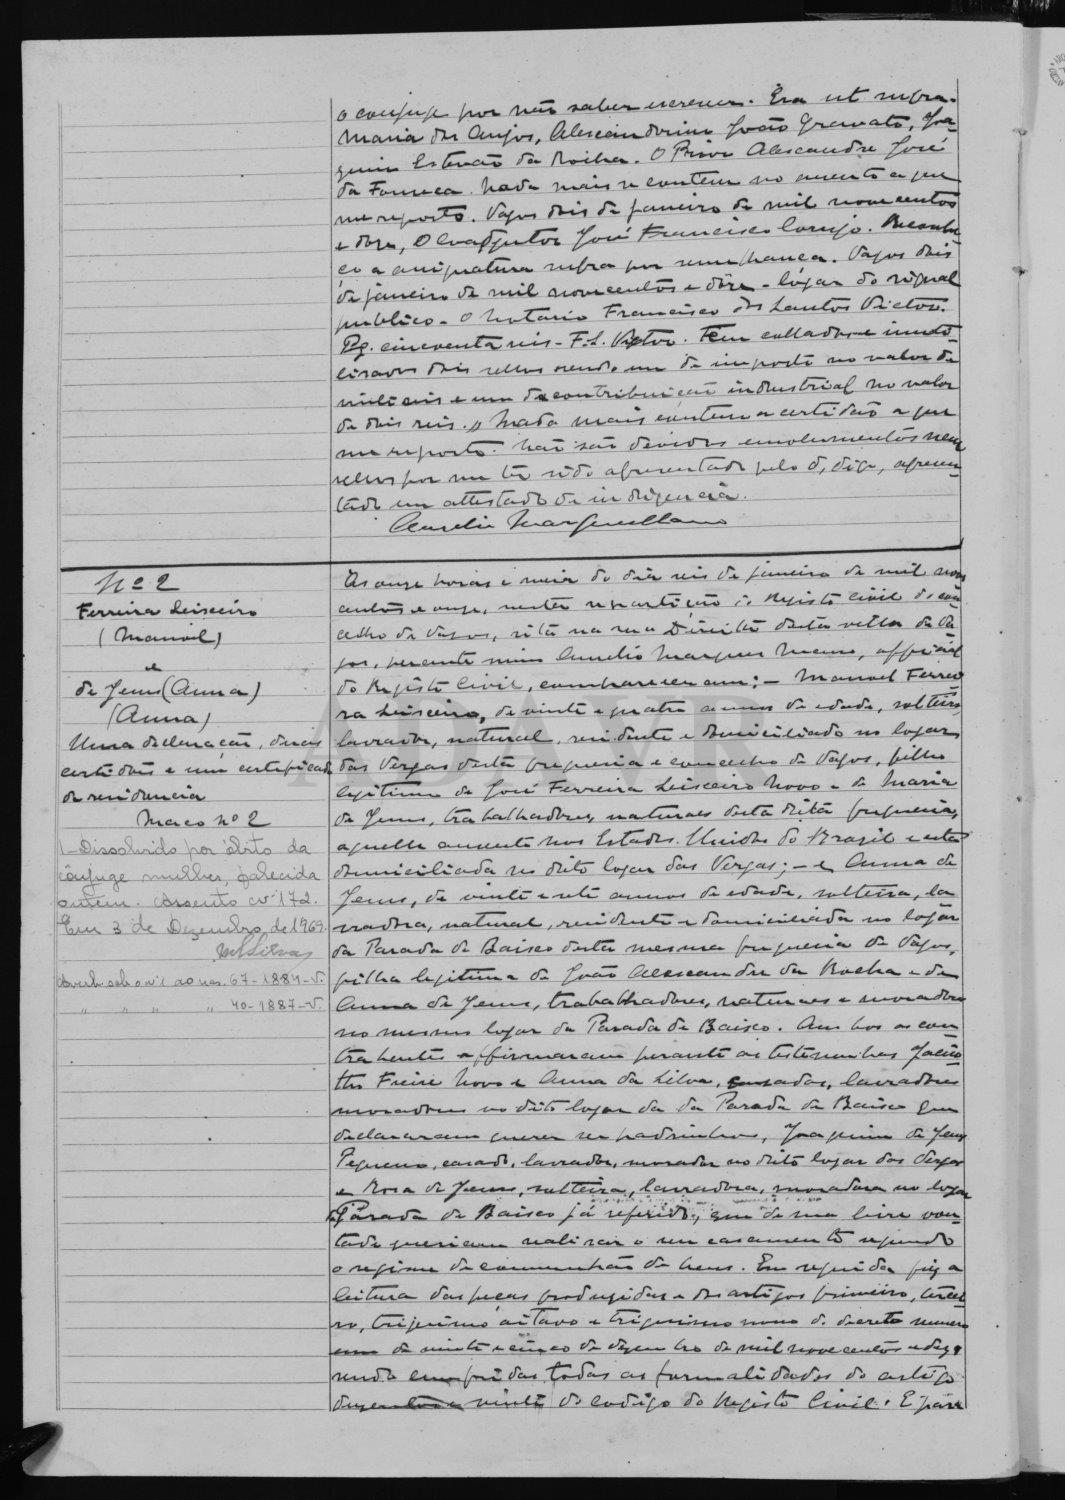 o conjuge por não saber escrever. Era ut supra.
Maria dos Anjos, Alexandrino João Gravato, Joa-
quim Estevão da Rocha. O Prior Alexandre José
da Fonseca. Nada mais se contem no assento a que
me reporto. Vagos dois de janeiro de mil novecentos
e dôse, O Coadjutor José Francisco Corujo. Reconhe-
ço a assignatura supra por semelhança. Vagos dois
de janeiro de mil novecentos e dôse - logar do signal
publico - O Notario Francisco dos Santos Victor.
Pg. cincoenta reis - F. S. Victor. Tem collados e inuti-
lisados dois sellos sendo um de imposto no valor de
mil reis e um de contribuição industrial no valor
de dois reis. Nada mais contem a certidão a que
me reporto. Não são devidos emolumentos nem
sellos por me ter sido apresentado pelo d, digo, apresen-
tado um attestado de indigencia.
Aurelio Marques Mano
Nº 2
Ferreira Leiseiro
(Manoel)
e
de Jesus (Anna)
(Anna)
Uma declaração, duas
certidões e um certificado
de residencia
Maço nº 2
1 - Dissolvido por óbito da
cônjuge mulher, falecida
ontem. Assento nº 172.
Em 3 de Dezembro de 1969.
Averb. sob o nº 1 aos nos. 67-1884-V.
" " " " 40-1887-V.
Ás onze horas e meia do dia seis de janeiro de mil nove
centos e onze, nesta repartição do Registo Civil do con-
celho de Vagos, sita na rua Direita desta villa de Va-
gos, perante mim Aurelio Marques Mano, official
do Registo Civil, compareceram: - Manoel Ferrei-
ra Leiseiro, de vinte e quatro annos de edade, solteiro,
lavrador, natural, residente e domiciliado no logar
das Vergas desta freguesia e concelho de Vagos, filho
legitimo de José Ferreira Leiseiro Novo e de Maria
de Jesus, trabalhadores, naturaes desta dita freguesia,
aquelle ausente nos Estados Unidos do Brazil e esta
domiciliada no dito logar das Vergas; - e Anna de
Jesus, de vinte e sete annos de edade, solteira, la
vradora, natural, residente e domiciliada no logar
da Parada de Baixo desta mesma freguesia de Vagos,
filha legitima de João Alexandre da Rocha e de
Anna de Jesus, trabalhadores, naturaes e moradores
no mesmo logar da Parada de Baixo. Ambos os con
trahentes affirmaram perante as testemunhas Jacin
tho Freire Novo e Anna da Silva, casados, lavradores
moradores no dito logar da da Parada de Baixo que
declararam querer ser padrinhos, Joaquim de Jesus
Pequeno, casado, lavrador, morador no dito logar das Vergas
e Rosa de Jesus, solteira, lavradora, moradora no logar
da Parada de Baixo já referido, que de sua livre von-
tade queriam realisar o seu casamento segundo
o regimen de communhão de bens. Em seguida fiz a
leitura das peças produzidas e dos artigos primeiro, tercei-
ro, trigesimo oitavo e trigesimo nono do decreto numero
um de vinte e cinco de dezembro de mil novecentos e dez,
sendo cumpridas todas as formalidades do artigo
duzentos e vinte do codigo do Registo Civil. E para